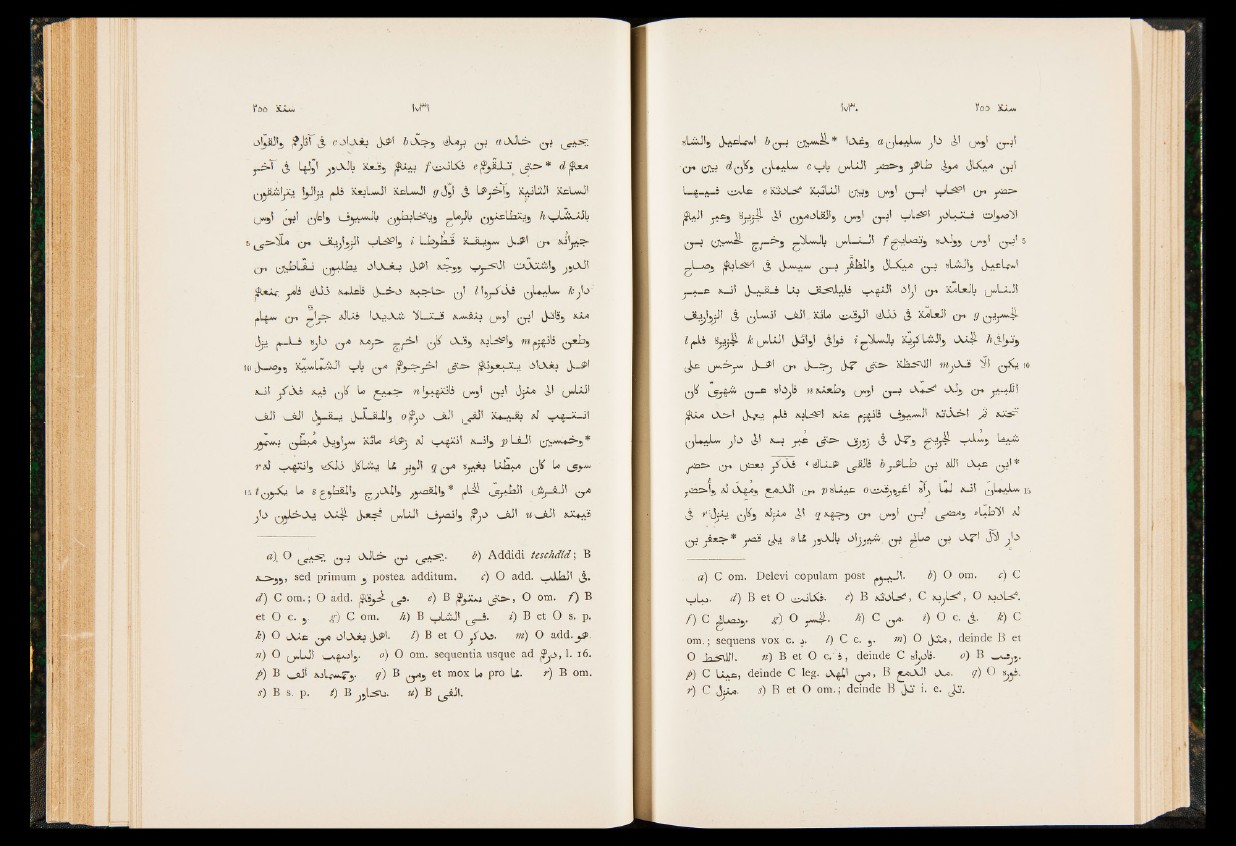 سنة ٢٥٥ ١٧٣٠
ابن اوس الى دار سليمان a وغدا *الحسين بن b اسماعيل والشاه
ابن ميكال مولى طاهر وحضر الناس باب c سليمان وكان d بين من
حضر من اصحاب ابن اوس وبين النائبة محادثة e علت فيها
الاصوات فتبادر اصحاب ابن اوس والقادمون الى الجزيرة وعبر اليهم
5 ابن اوس وولده وتصايح f الناس بالسلاح وخرج الحسين بن
اسماعيل والشاه بن ميكال والمظفر بن سيسل في اصحابهم وصاح
الناس بالعامة من اراد النهب فليلحق بنا فقيل انه عبر
الجسرين g من العامة في ذلك الوقت مائة الف انسان في الزواريق
وتوافى h الجند والشاكرية بالسلاح i فوافى اوائل الناس k الجزيرة فلم l
10 يكن الا قدر m اللحظة حتى حمل رجل من اهل سرخس على
الكبير من ولد محمد بن اوس وطعنه n فاراده عن شهرى كان
تحته ثم اخذته السيوف فانهزم عنه اصحابه فلم يحمل احد منهم
شيئا وسلب الجريح وحمل في زورق حتى عبر به الى دار سليمان
*ابن عبد الله بن طاهر b فالقى هناك، فذكر بعض من حضر
15 سليمان انه لما رآه اغرورقت o عيناه p من الدمع ومهد له وأحضر
له الاطباء ومضى ابن اوس من وجهه q الى منزله وكان ينزل r في
دار لآل احمد بن صالح بن شيرزاد بالدور مما s يلى قصر *جعفر بن
a) C om. Delevi copulam post اليوم. b) O om. c) C
بباب. d) B et O فكانت. e) B محادثه, C, O
f) C وتصالح. g) O الجسر. h) C من. i) O c. في. k) C
om.; sequens vox c. و. l) C c. و. m) O مثل, deinde B et
O اللحظ. n) B et O c. ف, deinde C فارداه. o) B ورقت.
p) C عينا, deinde C leg. من المهد, B مد الدمع. q) O فوره.
r) C منزل. s) B et O om.; deinde B تل i. e. تلى.
سنة ٢٥٥ ١٧٣١
يحيى بن خالد a بن برمك وجدّ b اهل بغداد c في آثارهم والقواد
معهم d *حتى تلقاهم e فكانت f بينهم وقعة بالدور اولها في آخر
الساعة الثانية واخرها في اول g الساعة السابعة فلم يزالوا يتراشقون
بالنشاب h ويتطاعنون بالرماح ويتخابطون بالسيوف واعان ابن اوس
5 جيرانه من اهل سويقة قطوطا i واصحاب الزواريق من ملاحى
الدور واشتدت الحرب ووجه اهل بغداد يطلبون نفاطين من
دار k سليمان فذكروا l ان حاجبه دخل فاعلمه ذلك فامر بمنعهم
منه وقاتل ابن اوس بنفسه قتالا شديدا فناله جراح من سهام
وطعن فانهزم m واصحابه وقد كان اخرج حرمه من داره فلم يزل
10 اهل بغداد يتبعونهم حتى اخرجوهم من باب الشماسية ووصل
الناس الى منزل ابن اوس فانتهبوا n جميع ما كان فيه فذكر انه
انتهب له بقيمة الفى الف درهم o والمقلل يقلل الف الف
*وخمسين الف p وانه انتهب له زهاء مائة سراويل مبطن بسمور
سوى ما كان مبطنا بغيره من q الوبر مما يشاكل ذلك وانتهب له r
15 من الفرش الطبرى الخام *والمقصور والمدرج والمقطوع s ما يكون t
قيمته الف u الف درهم وانصرف الناس فجعل الجند يدخلون دار
a) O يحيى بن خالد بن يحيى. b) Addidi teschdîd; B
ووحد, sed primum و postea additum. c) O add. في الطلب.
d) C om.; O add. هى. e) B حتى, O om. f) B
et O c. و. g) C om. h) B فى الشباب. i) B et O s. p.
k) O اهل بغداد من عند. l) B et O فذكر. m) O add. هو.
n) O وانتهب الناس. o) O om. sequentia usque ad درهم, l. 16.
p) B الف. q) B ومن et mox ما pro مما. r) B om.
s) B s. p. t) B. u) B الفى.